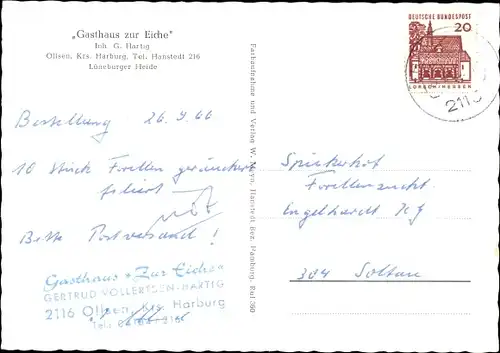 „Gasthaus zur Eiche"
Inh. G. Hartig
Ollsen, Krs. Harburg, Tel. Hanstedt 216
Lüneburger Heide
Bestellung 26.9.66
10 Stück Forellen geräuchert
filiert
Bitte Postversand!
Gasthaus „Zur Eiche"
GERTRUD VOLLERTSEN-HARTIG
2116 Ollsen, Krs. Harburg
Farbaufnahme und Verlag W. Hanstedt Bez. Hamburg, Ruf 390
DEUTSCHE BUNDESPOST
20
LORSCH/HESSEN
2116
Forellenzucht
Engelhardt KG
304 Soltau